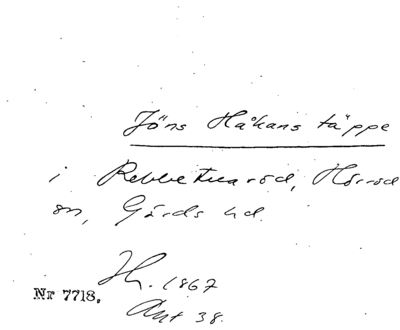 Jöns Håkans täppe
i Rebbetuaröd, Hörröd
sn, Gärds hd.
Th. 1867
Nr 7718.
Ant 38.